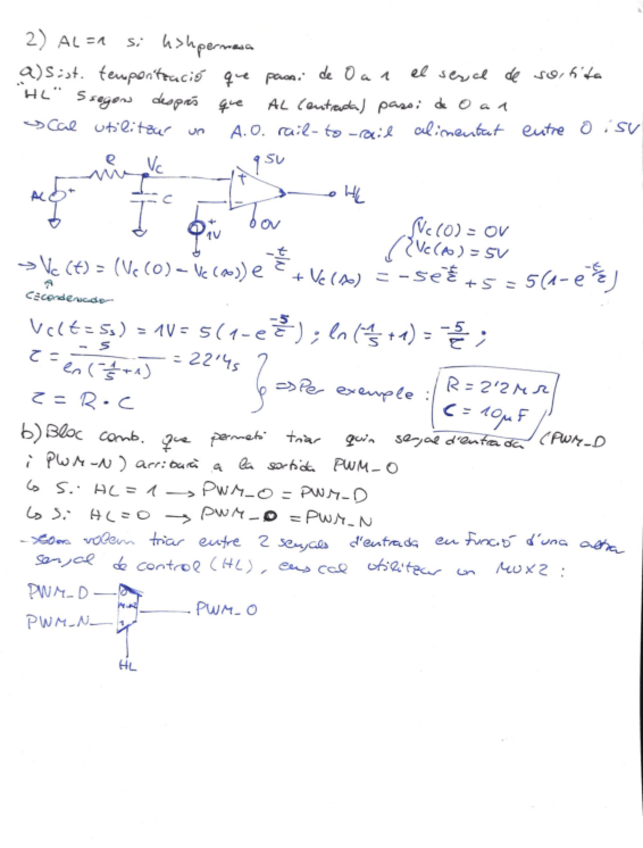 2) AL=1 si h>hpermesa
a) Sist. temporització que passi de 0 a 1 el senyal de sortida
"HL" 5 segons després que AL (entrada) passi de 0 a 1
→ Cal utilitzar un A.O. rail-to-rail alimentat entre 0 i 5V
R Vc 5V
AL + C + - HL
+ 1V 0V
{Vc(0) = 0V
{Vc(∞) = 5V
→ Vc(t) = (Vc(0) - Vc(∞)) e^(-t/τ) + Vc(∞) = -5e^(-t/τ) + 5 = 5(1-e^(-t/τ))
C≡condensador
Vc(t=5s) = 1V = 5(1-e^(-5/τ)) ; ln(-1/5 +1) = -5/τ ;
τ = -5/ln(-1/5 +1) = 22'4s
⇒ Per exemple : R = 2'2MΩ
C = 10μF
τ = R · C
b) Bloc comb. que permeti triar quin senyal d'entrada (PWM_D
i PWM-N) arribarà a la sortida PWM_O
↳ Si HL = 1 → PWM_O = PWM_D
↳ Si HL=0 → PWM_O = PWM_N
volem triar entre 2 senyals d'entrada en funció d'una altra
senyal de control (HL), ens cal utilitzar un MUX2 :
PWM_D 0
PWM_N 1 PWM_O
HL